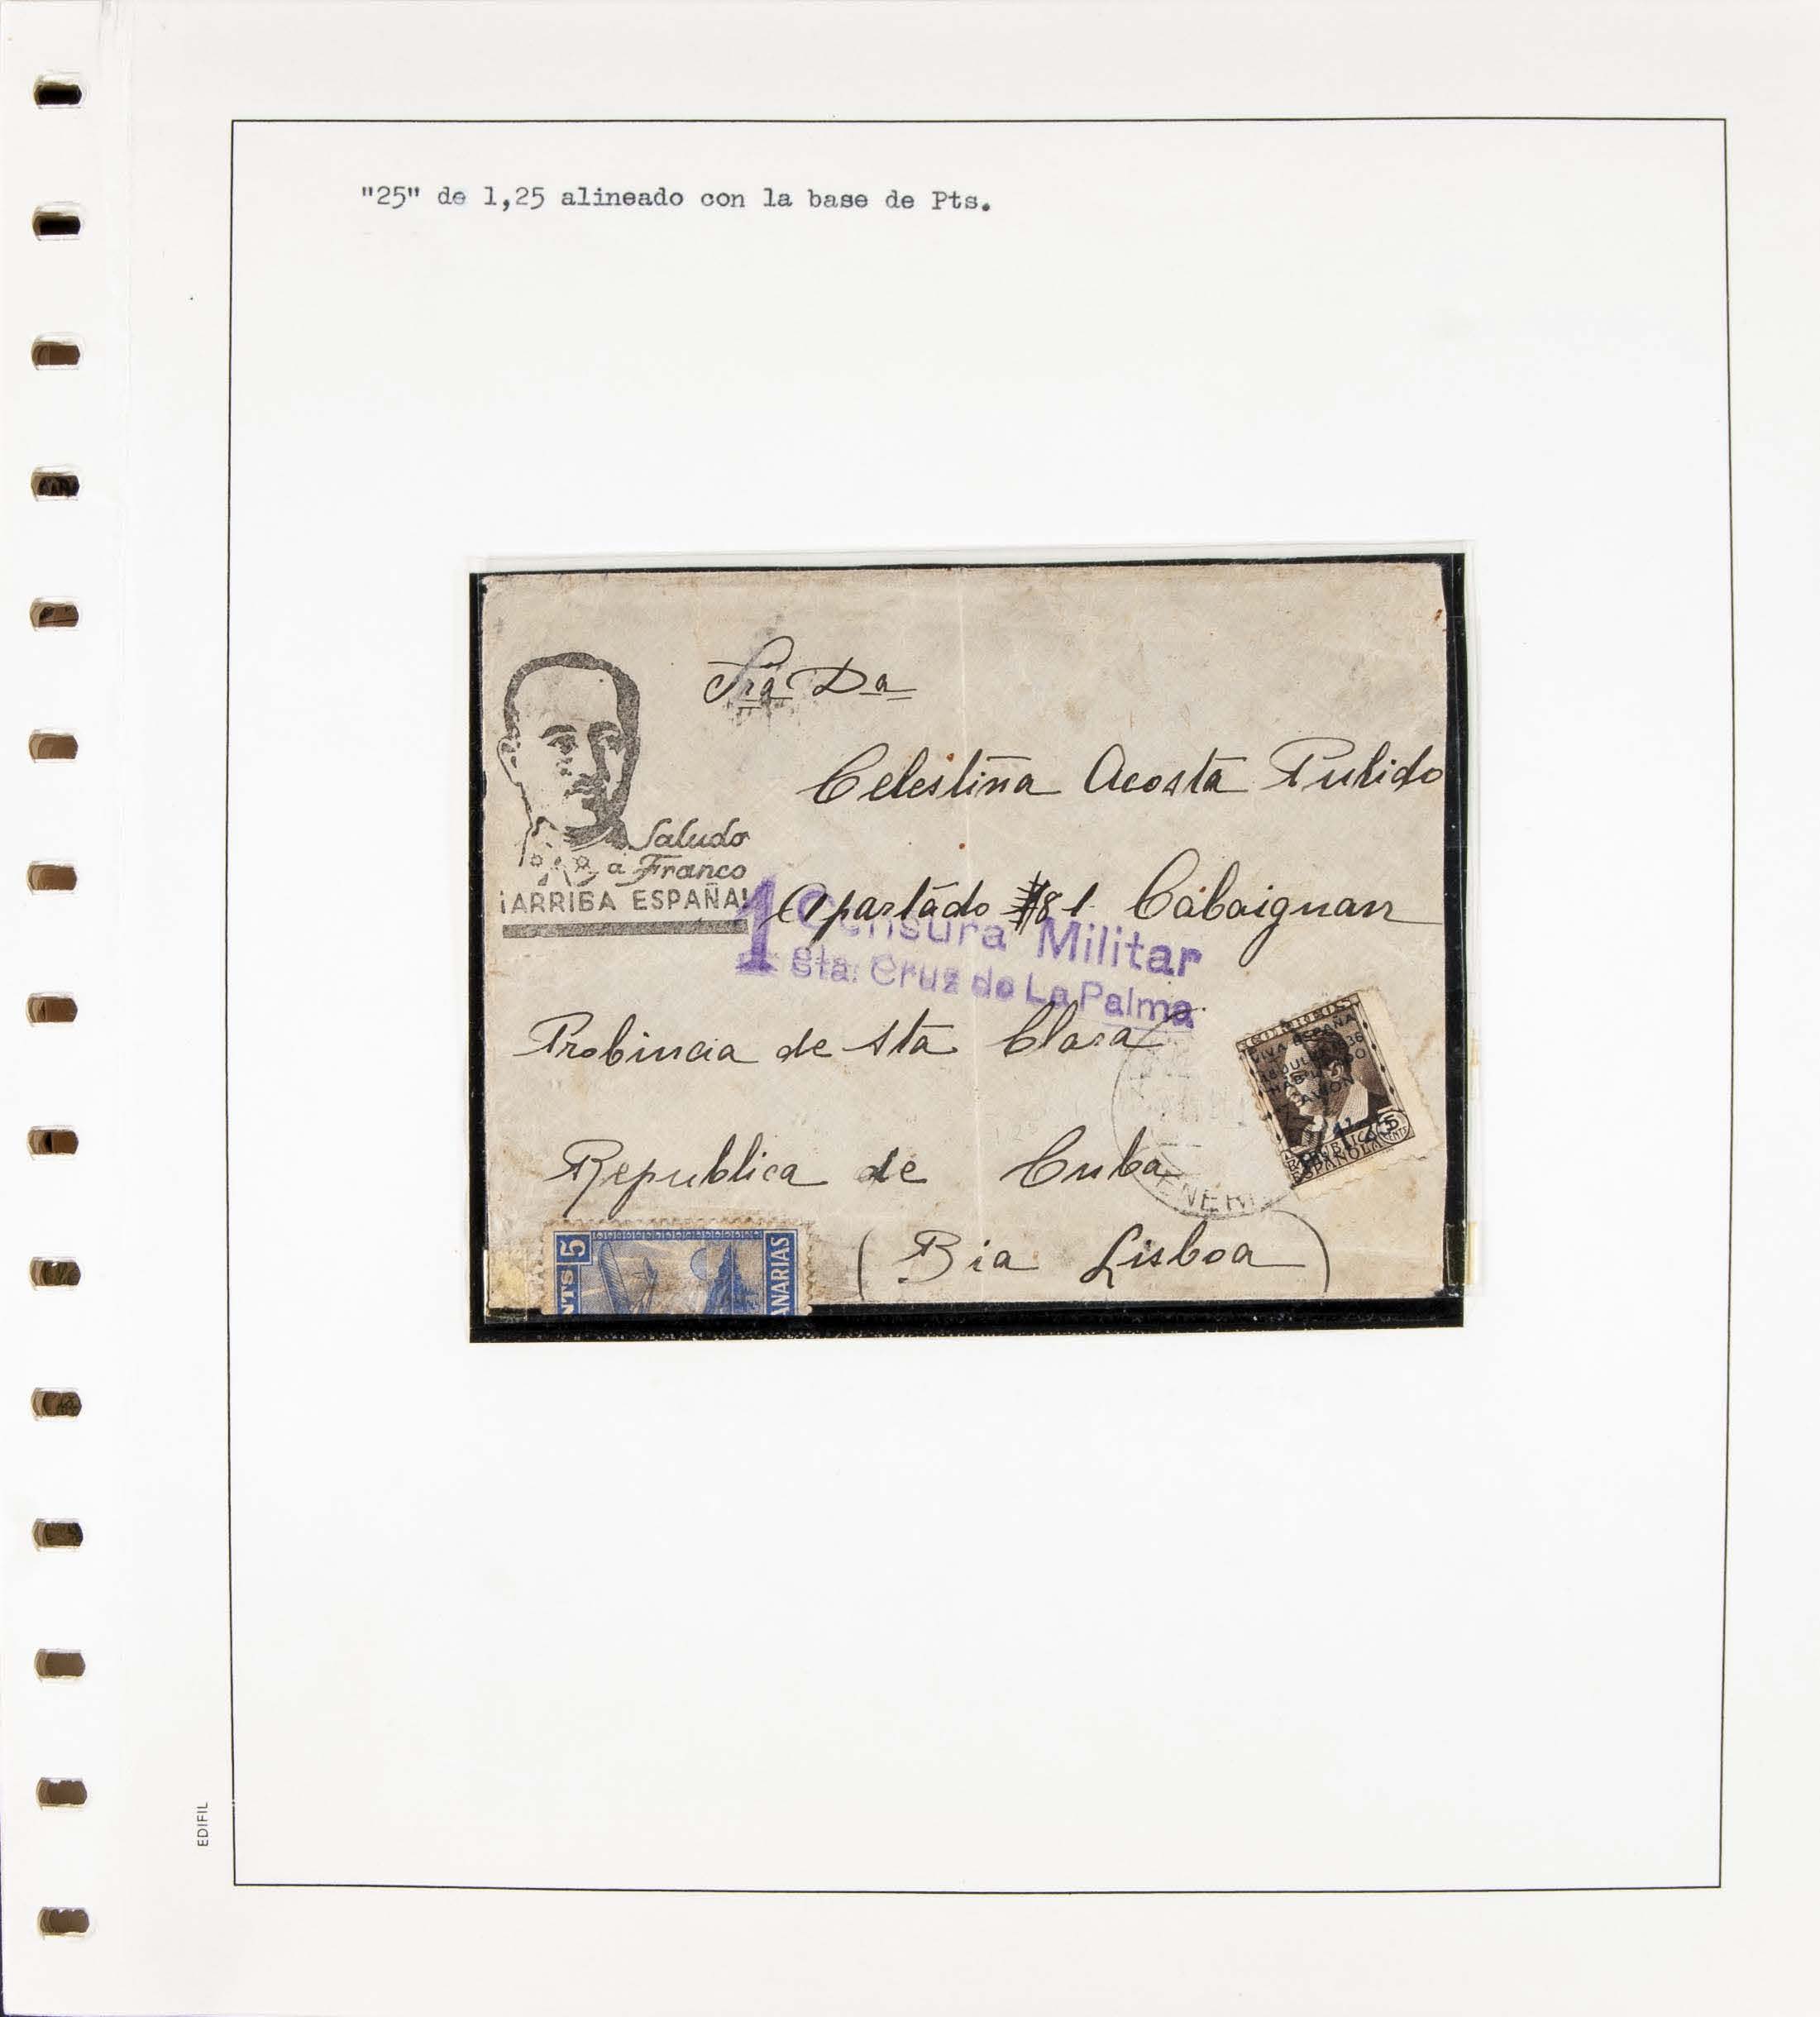 "25" de 1,25 alineado con la base de Pts.
Sra Da
Celestina Acosta Pulido
Saludo
a Franco
¡ARRIBA ESPAÑA!
Apartado #81 Cabaiguan
1 Censura Militar
Sta. Cruz de La Palma
Probincia de Sta Clara
VIVA ESPAÑA
18 JULIO 1936
HABILITADO
AVION
REPUBLICA
ESPAÑOLA
Republica de Cuba
(Bia Lisboa)
5
NTS
ANARIAS
EDIFIL